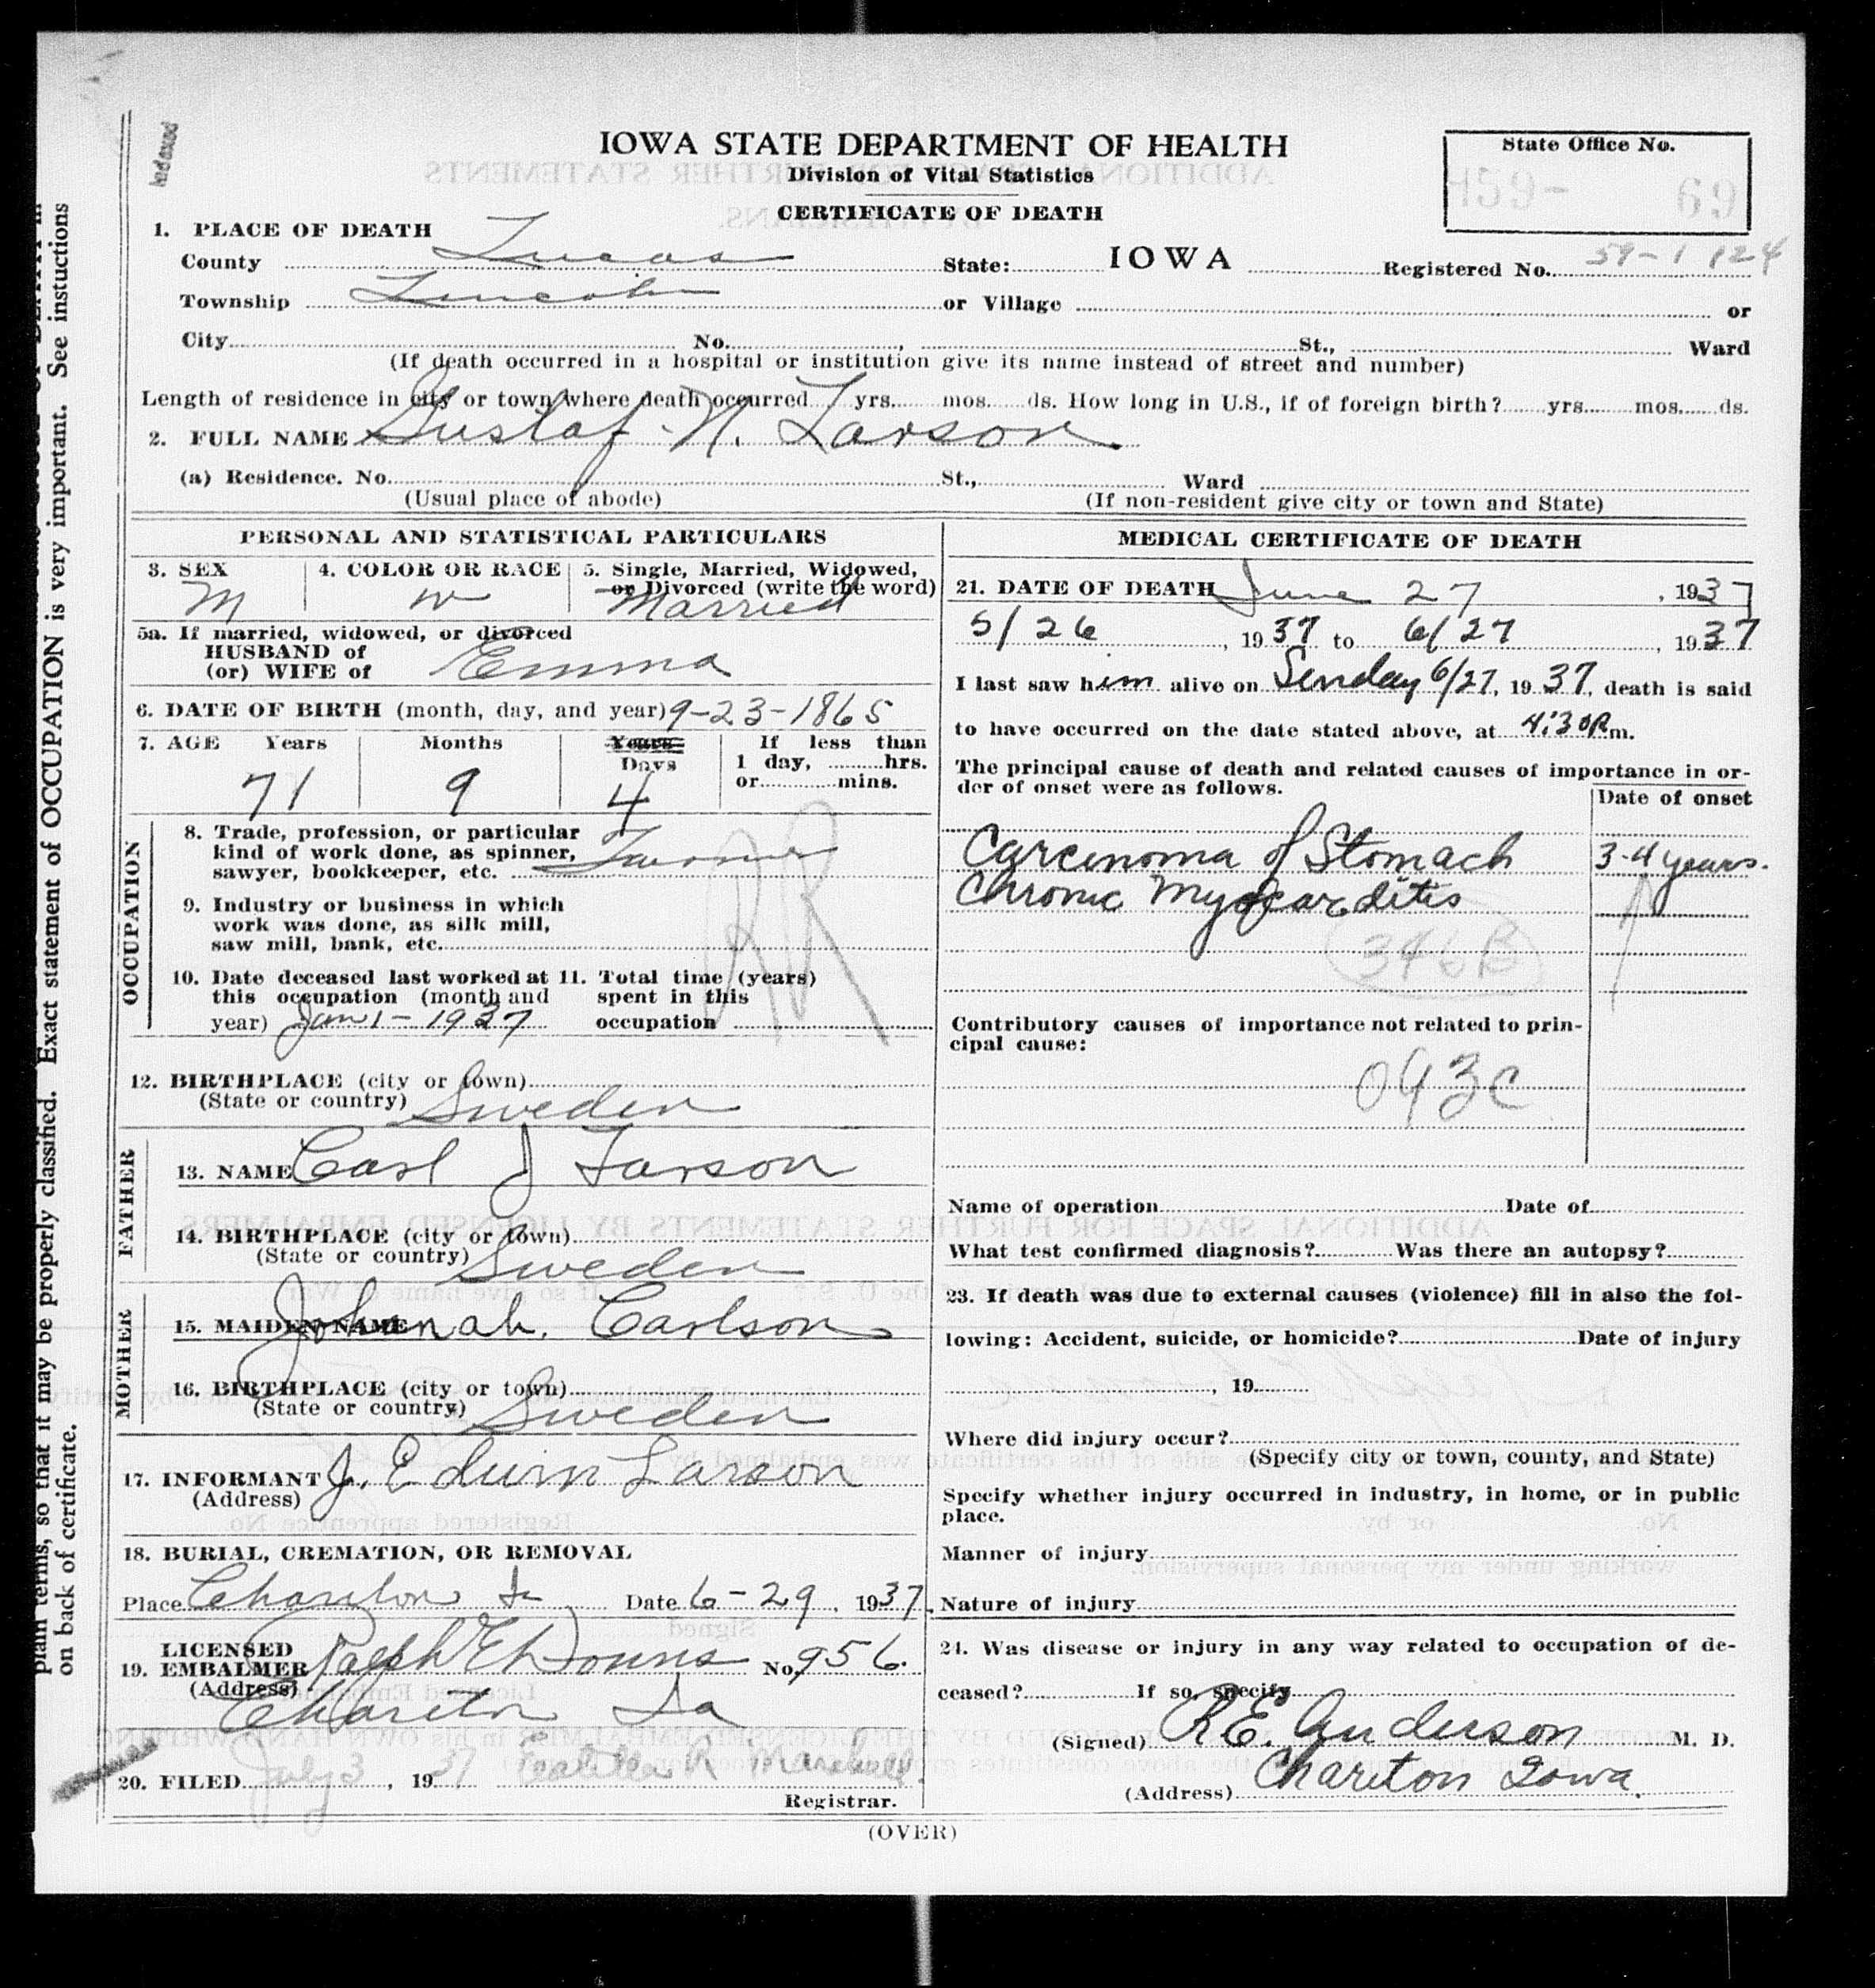 Indexed
IOWA STATE DEPARTMENT OF HEALTH
Division of Vital Statistics
CERTIFICATE OF DEATH
State Office No.
H59- 69
1. PLACE OF DEATH
County Lucas State: IOWA Registered No. 59-1 124
Township Lincoln or Village or
City No. , St., Ward
(If death occurred in a hospital or institution give its name instead of street and number)
Length of residence in city or town where death occurred yrs. mos. ds. How long in U.S., if of foreign birth? yrs. mos. ds.
2. FULL NAME Gustaf N. Larson
(a) Residence. No. St., Ward
(Usual place of abode) (If non-resident give city or town and State)
PERSONAL AND STATISTICAL PARTICULARS
3. SEX 4. COLOR OR RACE 5. Single, Married, Widowed,
or Divorced (write the word)
M W Married
5a. If married, widowed, or divorced
HUSBAND of
(or) WIFE of Emma
6. DATE OF BIRTH (month, day, and year) 9-23-1865
7. AGE Years Months Years If less than
Days 1 day, hrs.
or mins.
71 9 4
OCCUPATION
8. Trade, profession, or particular
kind of work done, as spinner,
sawyer, bookkeeper, etc. Farmer
9. Industry or business in which
work was done, as silk mill,
saw mill, bank, etc.
10. Date deceased last worked at 11. Total time (years)
this occupation (month and spent in this
year) Jan 1 - 1937 occupation
12. BIRTHPLACE (city or town)
(State or country) Sweden
FATHER
13. NAME Carl J Larson
14. BIRTHPLACE (city or town)
(State or country) Sweden
MOTHER
15. MAIDEN NAME Johanah. Carlson
16. BIRTHPLACE (city or town)
(State or country) Sweden
17. INFORMANT J. Edwin Larson
(Address)
18. BURIAL, CREMATION, OR REMOVAL
Place Chariton Ia Date 6-29, 1937.
LICENSED
19. EMBALMER Ralph E Downs No. 956.
(Address)
Chariton Ia
20. FILED July 3, 1937
Registrar.
MEDICAL CERTIFICATE OF DEATH
21. DATE OF DEATH June 27, 1937
5/26, 1937 to 6/27, 1937
I last saw him alive on Sunday 6/27, 1937, death is said
to have occurred on the date stated above, at 4:30 P.m.
The principal cause of death and related causes of importance in or-
der of onset were as follows.
Date of onset
Carcinoma of Stomach 3-4 years.
Chronic Myocarditis
346B
Contributory causes of importance not related to prin-
cipal cause:
093c
Name of operation Date of
What test confirmed diagnosis? Was there an autopsy?
23. If death was due to external causes (violence) fill in also the fol-
lowing: Accident, suicide, or homicide? Date of injury
, 19
Where did injury occur?
(Specify city or town, county, and State)
Specify whether injury occurred in industry, in home, or in public
place.
Manner of injury
Nature of injury
24. Was disease or injury in any way related to occupation of de-
ceased? If so, specify
(Signed) R.E. Anderson M. D.
(Address) Chariton Iowa.
(OVER)
plain terms, so that it may be properly classified. Exact statement of OCCUPATION is very important. See instuctions
on back of certificate.